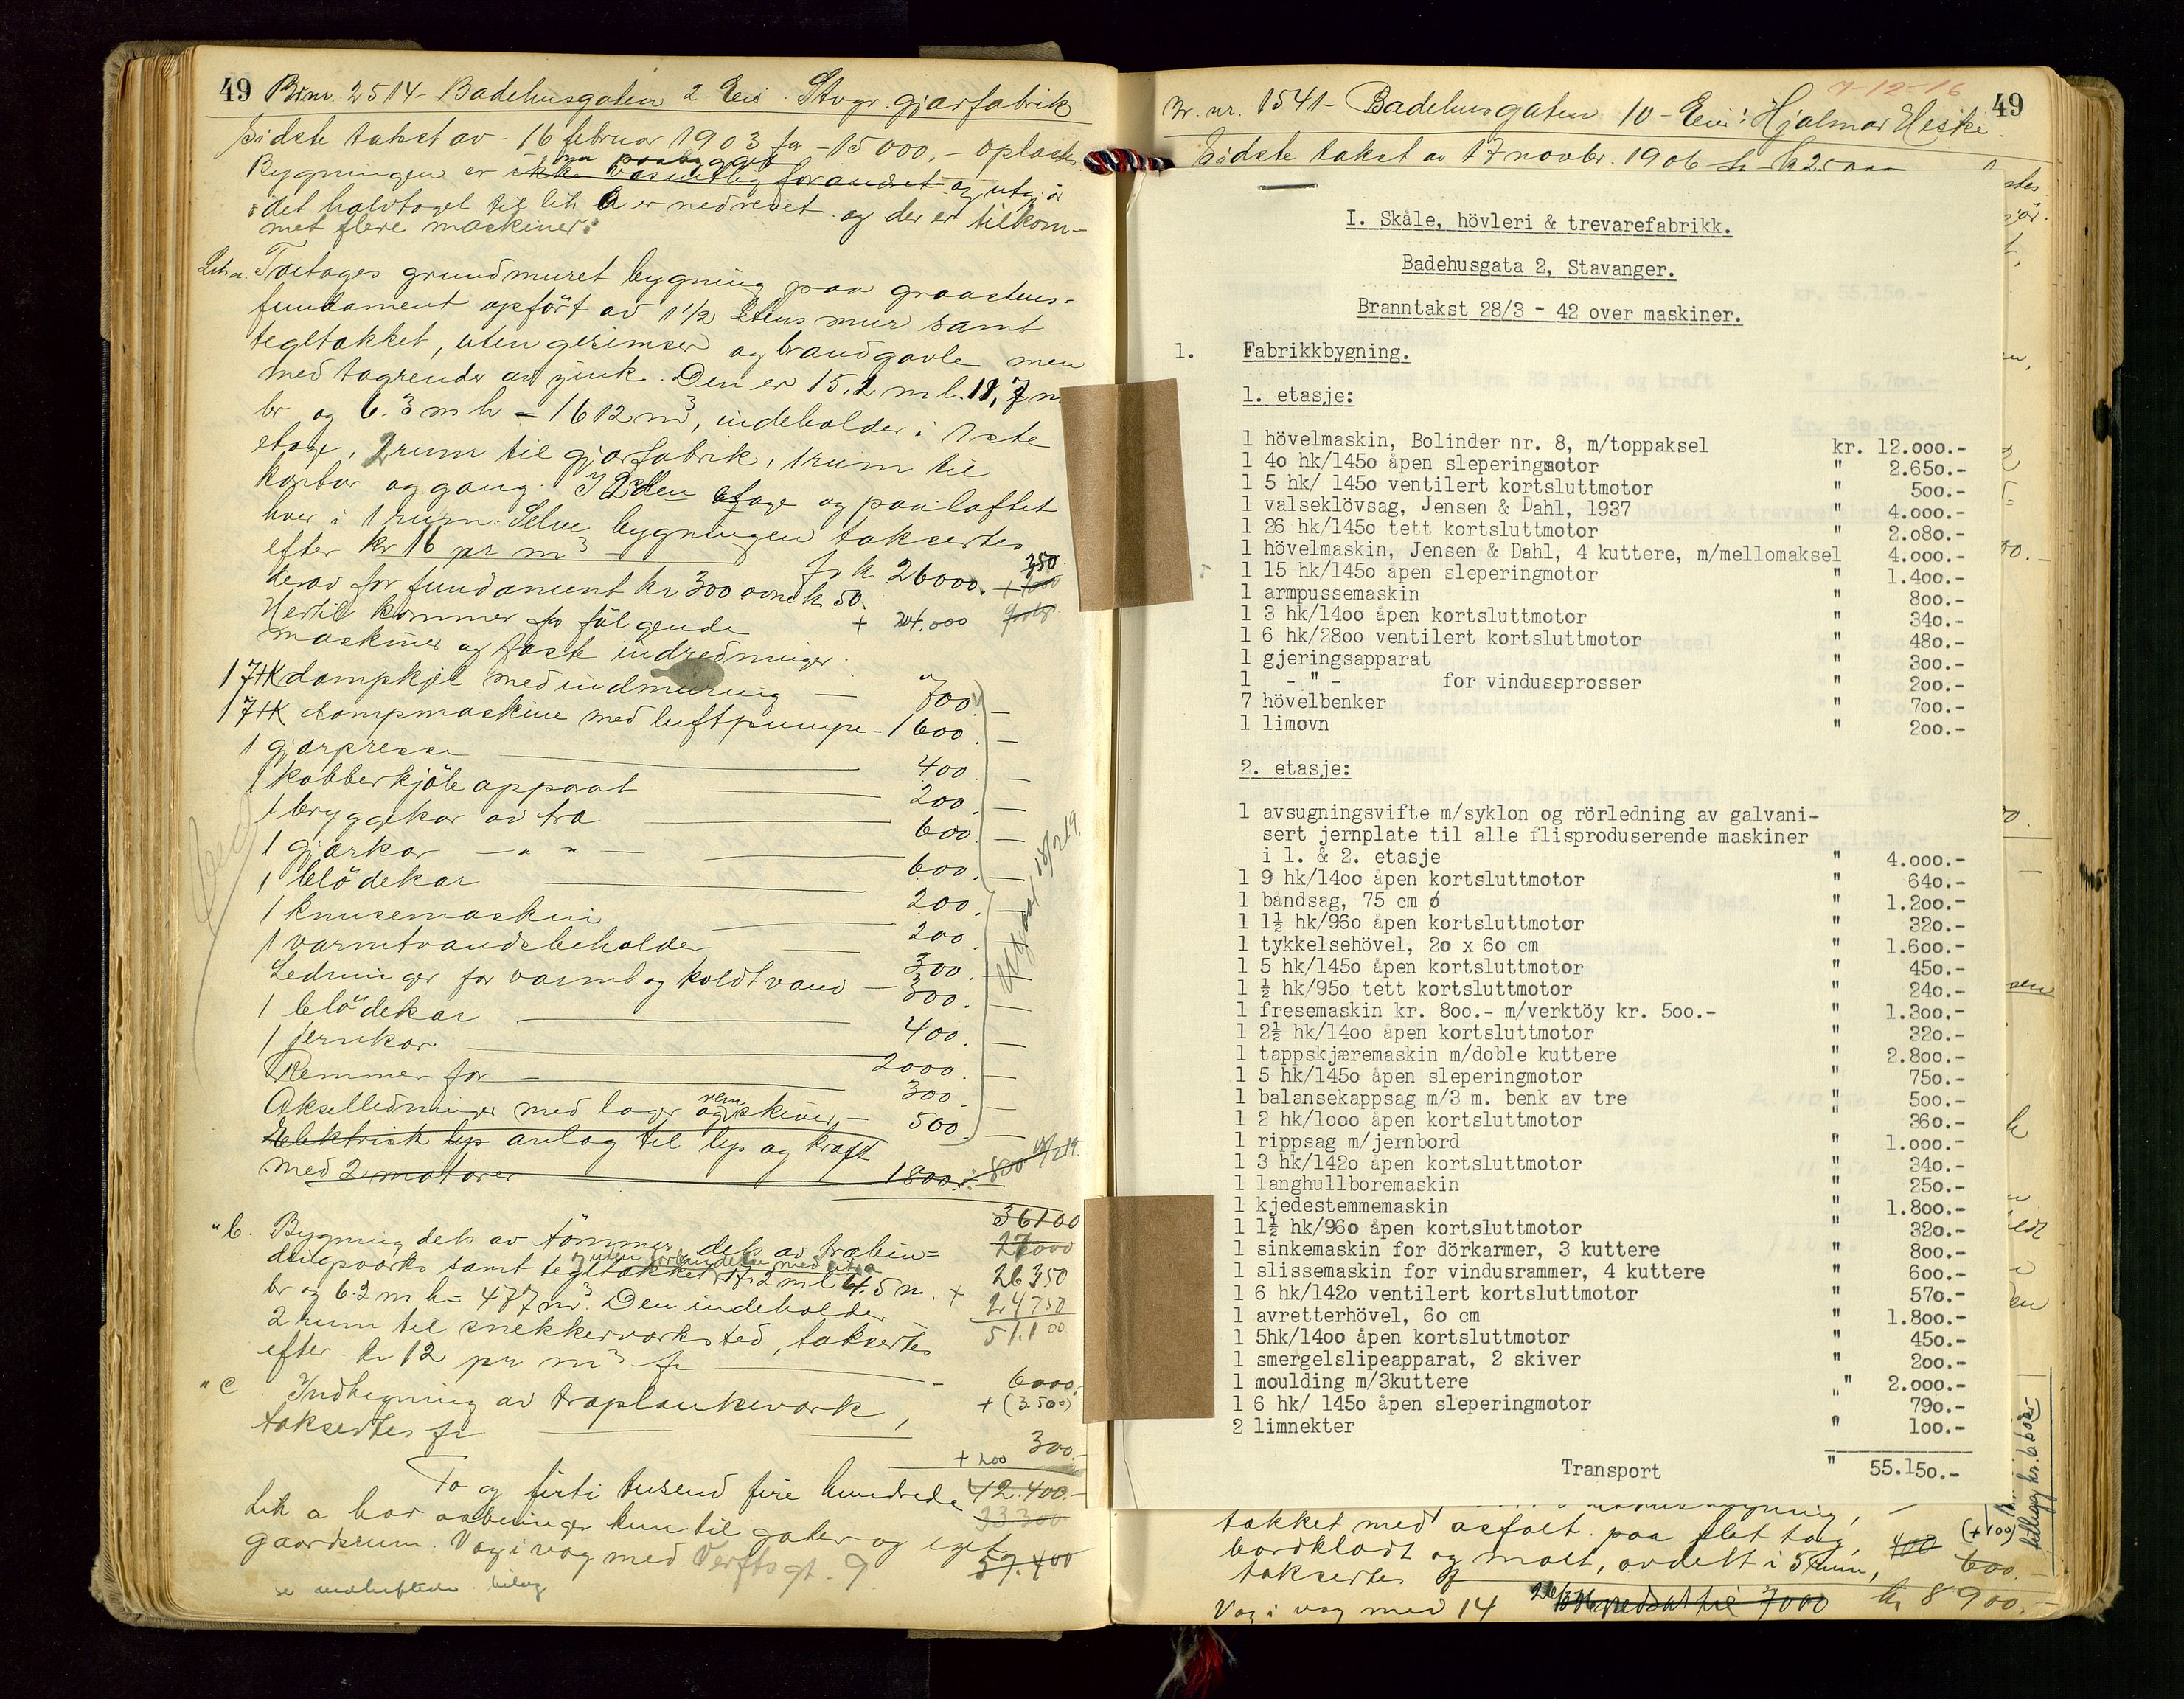 49 Br.nr. 2514 - Badehusgaten 2. Eier. Stvgr. gjærfabrik
Sidste takst av 16 februar 1903 for - 15000.- oplæstes
Bygningen er ikke væsentlig forandret og utgjør
det halvtaget til lith a er nedrevet og der er tilkom-
met flere maskiner.
Lith a. Toetages grundmuret bygning paa graastens-
fundament opført av 1 1/2 Stens mur samt
tegltækket, uten gesimser og brandgavle men
med tagrender av zink. Den er 15,2 m l. 11,7 m
br og 6.3 m h = 1612 m3, indeholder i 1ste
etage, 2 rum til gjærfabrik, 1 rum til
kontor og gang. I 2den etage og paa loftet
hver i 1 rum. Selve bygningen taksertes
efter kr 16 pr m3 for kr 26000. 350
derav for fundament kr 300
Hertil kommer for følgende + 24.000
maskiner og faste indredninger.
1 7HK dampkjel med indmuring — 700.—
1 7HK dampmaskine med luftpumpe - 1600.—
1 gjærpresse 400.—
1 kobberkjøleapparat 200.—
1 bryggekar av træ 600.—
1 gjærkar — " — 600.—
1 blødekar 200.—
1 knusemaskin 200.—
1 varmtvandsbeholder 300.—
Ledninger for varmt og koldt vand — 300.—
1 blødekar 400.—
1 jernkar 2000.—
Remmer for — 300.—
Akselledninger med lager og remskiver — 500.—
Elektrisk lys anlæg til lys og kraft
med 2 motorer 1800.-
36100
27000
" b. Bygning dels av tømmer dels av træbin-
dingsværk samt tegltækket 17.2 m l 4.5 m. 26350
br og 6.2 m h = 477 m3. Den indeholder + 24750
2 rum til snekkerværksted, taksertes 51.100
efter kr 12 pr m3 for — 6000.-
" c. Indhegning av træplankeværk, + (3.500)
taksertes for 300.-
+ 200
To og firti tusend fire hundrede 42.400.-
Lith a har aabninger kun til gaten og eget 33300
gaardsrum. Væg i væg med Verftsgt. 9. 57.400
se vedheftede bilag
7-12-16
Br. nr. 1541 - Badehusgaten 10 - Eier: Hjalmar Heske. 49
Sidste takst av 17 novbr. 1906
I. Skåle, hövleri & trevarefabrikk.
Badehusgata 2, Stavanger.
Branntakst 28/3 - 42 over maskiner.
1. Fabrikkbygning.
1. etasje:
1 hövelmaskin, Bolinder nr. 8, m/toppaksel kr. 12.000.-
1 40 hk/1450 åpen sleperingmotor " 2.650.-
1 5 hk/ 1450 ventilert kortsluttmotor " 500.-
1 valseklövsag, Jensen & Dahl, 1937 " 4.000.-
1 26 hk/1450 tett kortsluttmotor " 2.080.-
1 hövelmaskin, Jensen & Dahl, 4 kuttere, m/mellomaksel " 4.000.-
1 15 hk/1450 åpen sleperingmotor " 1.400.-
1 armpussemaskin " 800.-
1 3 hk/1400 åpen kortsluttmotor " 340.-
1 6 hk/2800 ventilert kortsluttmotor " 480.-
1 gjeringsapparat " 300.-
1 - " - for vindussprosser " 200.-
7 hövelbenker " 700.-
1 limovn " 200.-
2. etasje:
1 avsugningsvifte m/syklon og rörledning av galvani-
sert jernplate til alle flisproduserende maskiner
i 1. & 2. etasje " 4.000.-
1 9 hk/1400 åpen kortsluttmotor " 640.-
1 båndsag, 75 cm ø " 1.200.-
1 1½ hk/960 åpen kortsluttmotor " 320.-
1 tykkelsehövel, 20 x 60 cm " 1.600.-
1 5 hk/1450 åpen kortsluttmotor " 450.-
1 ½ hk/950 tett kortsluttmotor " 240.-
1 fresemaskin kr. 800.- m/verktöy kr. 500.- " 1.300.-
1 2½ hk/1400 åpen kortsluttmotor " 320.-
1 tappskjæremaskin m/doble kuttere " 2.800.-
1 5 hk/1450 åpen sleperingmotor " 750.-
1 balansekappsag m/3 m. benk av tre " 500.-
1 2 hk/1000 åpen kortsluttmotor " 360.-
1 rippsag m/jernbord " 1.000.-
1 3 hk/1420 åpen kortsluttmotor " 340.-
1 langhullboremaskin " 250.-
1 kjedestemmemaskin " 1.800.-
1 1½ hk/960 åpen kortsluttmotor " 320.-
1 sinkemaskin for dörkarmer, 3 kuttere " 800.-
1 slissemaskin for vindusrammer, 4 kuttere " 600.-
1 6 hk/1420 ventilert kortsluttmotor " 570.-
1 avretterhövel, 60 cm " 1.800.-
1 5hk/1400 åpen kortsluttmotor " 450.-
1 smergelslipeapparat, 2 skiver " 200.-
1 moulding m/3kuttere " 2.000.-
1 6 hk/ 1450 åpen sleperingmotor " 790.-
2 limnekter " 100.-
Transport " 55.150.-
tækket med asfalt paa flat tag, (+100)
bordklædt og malt, avdelt i 5 rum, 400 600.-
taksertes
Væg i væg med 14 nedsat til 7000 kr 8900.-